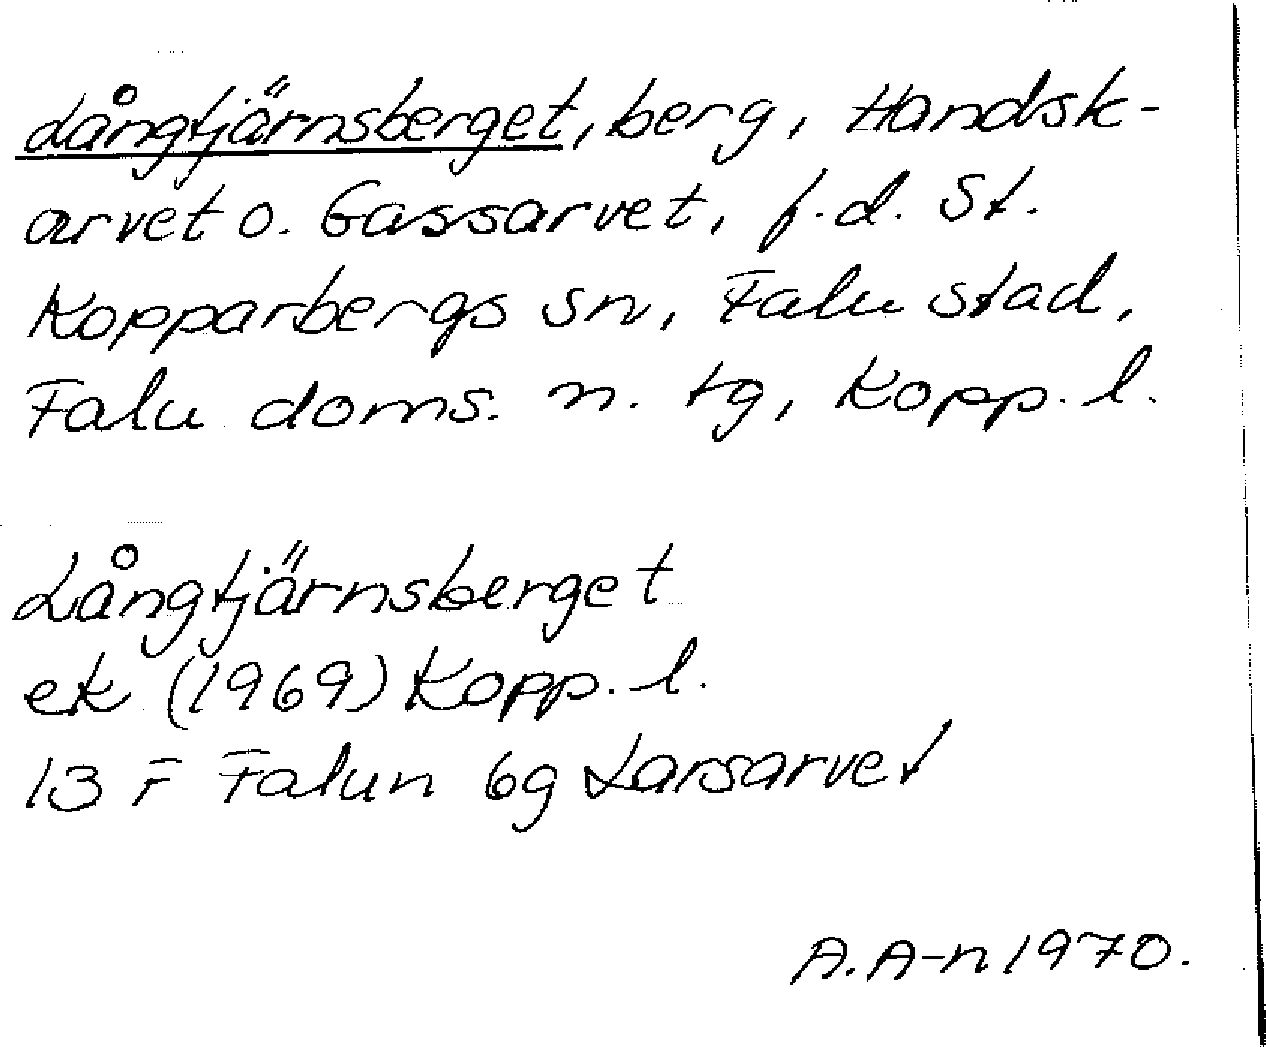 Långtjärnsberget, berg, Handsk-
arvet o. Gassarvet, f.d. St.
Kopparbergs sn, Falu stad,
Falu doms. n. tg, Kopp. l.
Långtjärnsberget
ek (1969) Kopp. l.
13 F Falun 6g Larsarvet
A. A-n 1970.